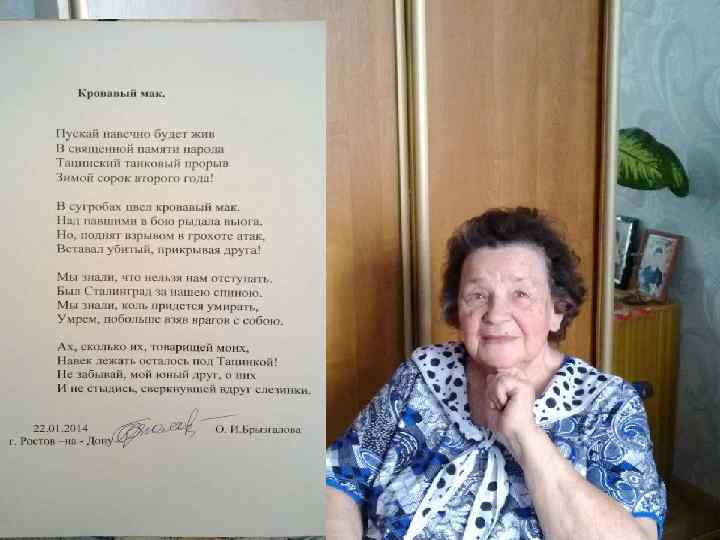 Кровавый мак.
Пускай навечно будет жив
В священной памяти народа
Тацинский танковый прорыв
Зимой сорок второго года!
В сугробах цвел кровавый мак.
Над павшими в бою рыдала вьюга.
Но, поднят взрывом в грохоте атак,
Вставал убитый, прикрывая друга!
Мы знали, что нельзя нам отступать.
Был Сталинград за нашею спиною.
Мы знали, коль придется умирать,
Умрем, побольше взяв врагов с собою.
Ах, сколько их, товарищей моих,
Навек лежать осталось под Тацинкой!
Не забывай, мой юный друг, о них
И не стыдись, сверкнувшей вдруг слезинки.
22.01.2014 О. И.Брызгалова
г. Ростов –на - Дону